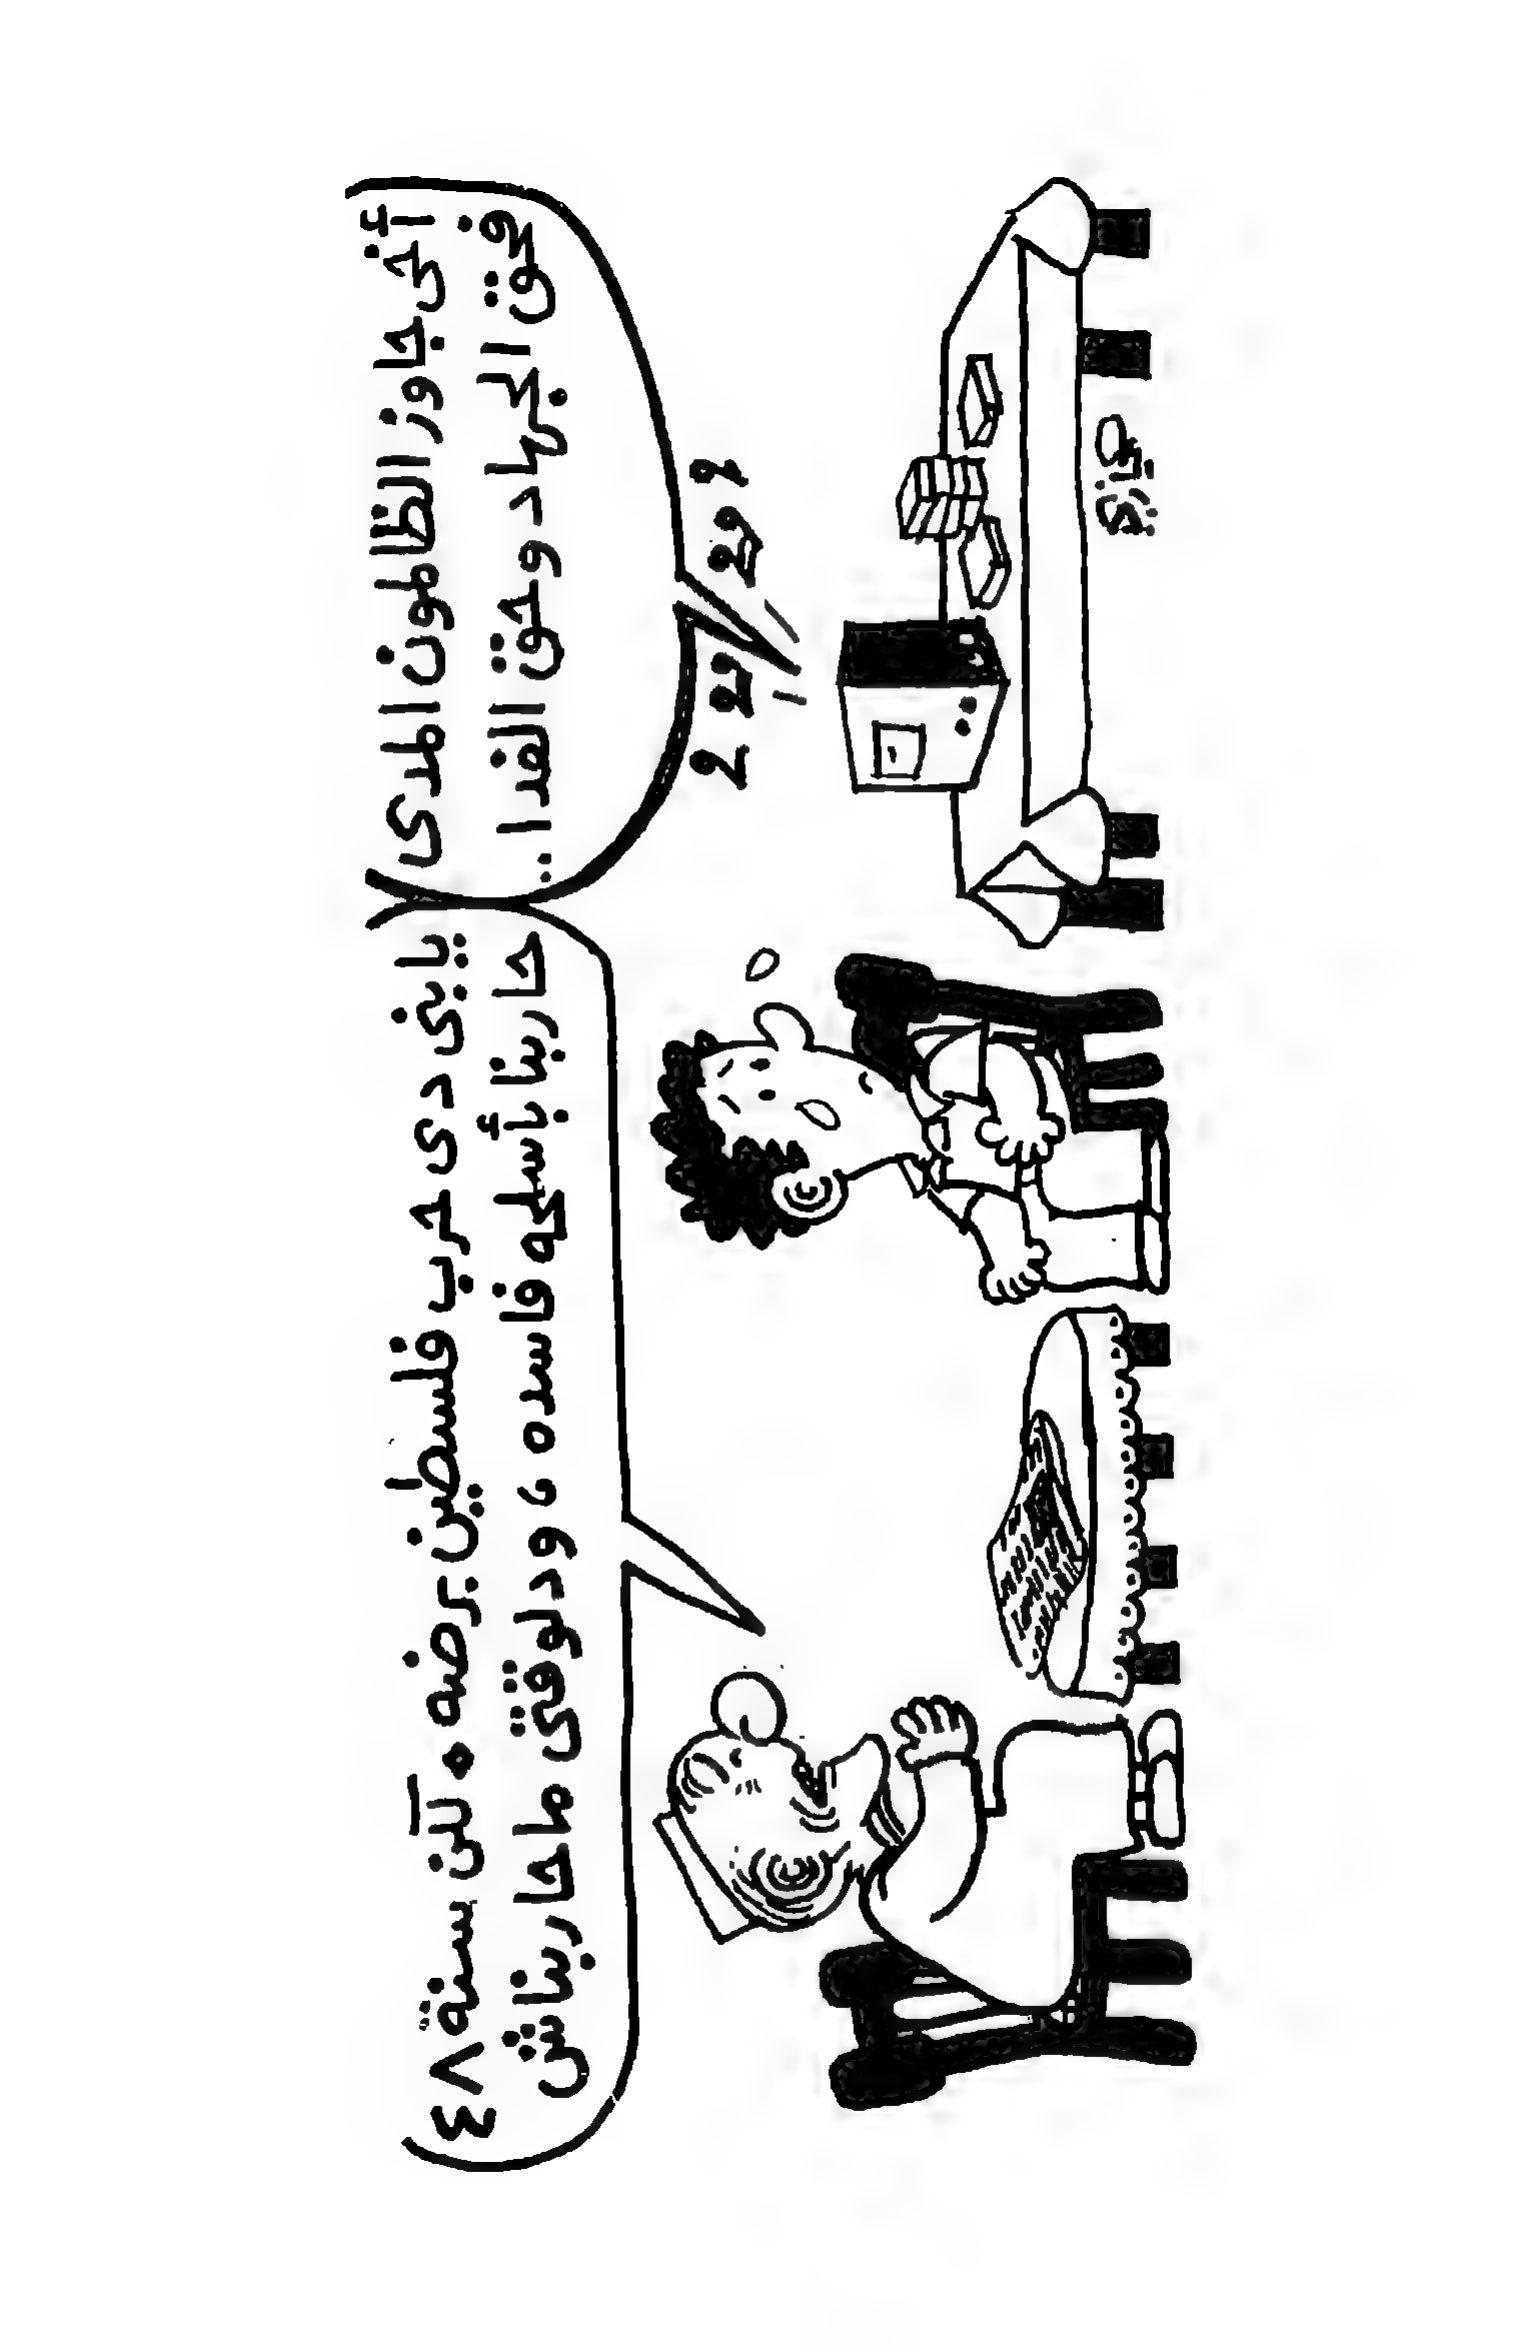 أخى جاوز الظالمون المدى
فحق الجهاد وحق الفدا ..
يابنى دى حرب فلسطين برضه . لكن سنة ٤٨
حاربنا بأسلحه فاسده ، ودلوقتى ماحاربناش